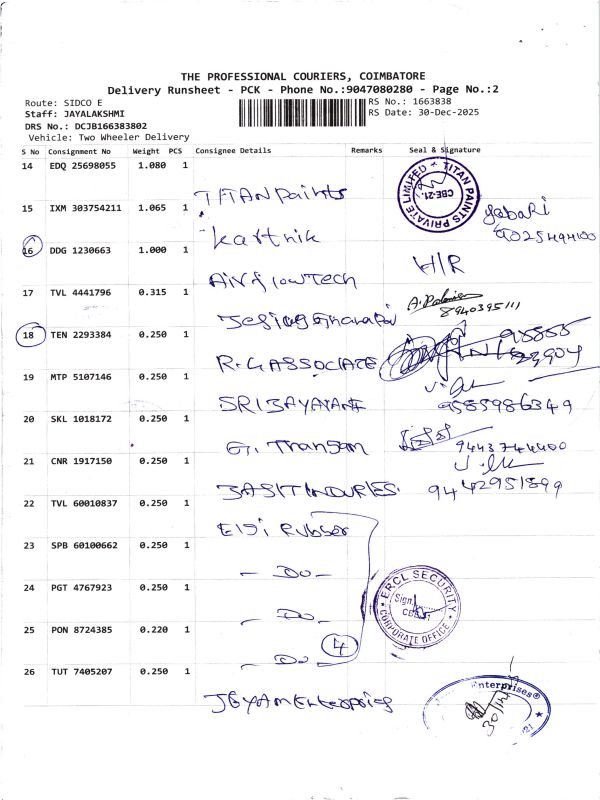 THE PROFESSIONAL COURIERS, COIMBATORE
Delivery Runsheet - PCK - Phone No.:9047080280 - Page No.:2
Route: SIDCO E
Staff: JAYALAKSHMI
DRS No.: DCJB166383802
Vehicle: Two Wheeler Delivery
RS No.: 1663838
RS Date: 30-Dec-2025
S No Consignment No Weight PCS Consignee Details Remarks Seal & Signature
14 EDQ 25698055 1.080 1 TITAN Paints
TITAN PAINTS PRIVATE LIMITED CBE-21.
15 IXM 303754211 1.065 1 Karthik
16 DDG 1230663 1.000 1 Airflow Tech H/R
17 TVL 4441796 0.315 1
8940395111
18 TEN 2293384 0.250 1 R.G ASSOCIATE
19 MTP 5107146 0.250 1
9585986349
20 SKL 1018172 0.250 1
9443744400
21 CNR 1917150 0.250 1
9442951899
22 TVL 60010837 0.250 1 Elgi Rubber
23 SPB 60100662 0.250 1 - Do -
24 PGT 4767923 0.250 1 - Do -
ERCL SECURITY CORPORATE OFFICE
Sign.
25 PON 8724385 0.220 1 - Do - 4
26 TUT 7405207 0.250 1 Enterprises
Enterprises®